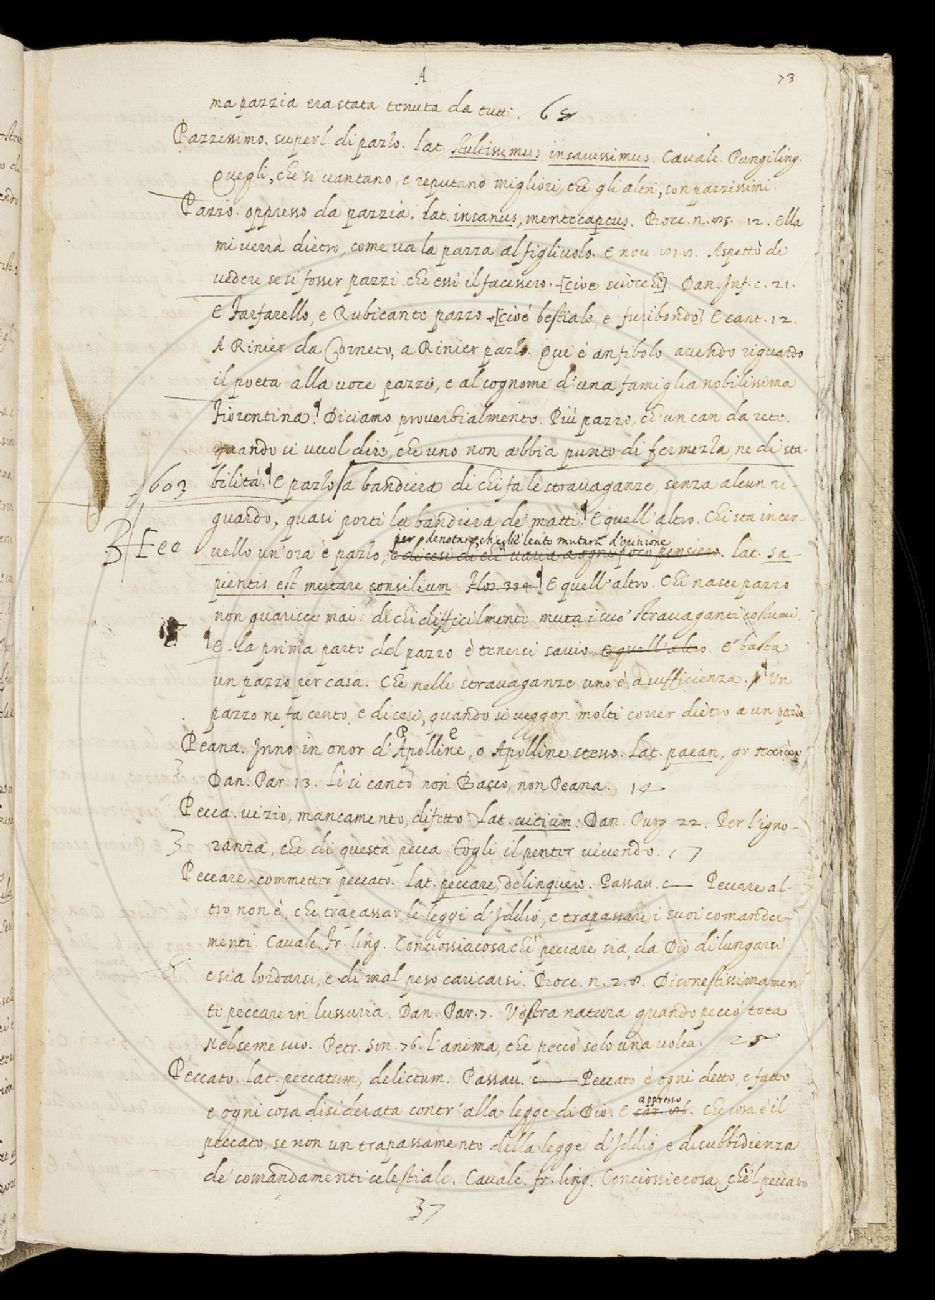 A
73
ma pazzia era stata tenuta da tutti. 65
Pazzissimo. superl. di pazzo. lat. stultissimus, insanissimus. Cavalc. Pungiling.
Quegli, che si vantano, e reputano migliori, che gli altri, son pazzissimi.
Pazzo. oppresso da pazzia. lat. insanus, mentecaptus. Bocc. n. 12. Ella
mi verrà dietro, come va la pazza al figliuolo. E nov. Aspettò di
vedere se si fosser pazzi, che essi il facessero. [cioè sciocchi] Dan. Inf. c. 21.
E Farfarello, e Rubicante pazzo [cioè bestiale, e furibondo] E cant. 12.
A Rinier da Corneto, a Rinier pazzo. Qui è anfibolo avendo riguardo
il poeta alla voce pazzo, e al cognome d'una famiglia nobilissima
Fiorentina. Diciamo proverbialmente. Più pazzo, ch'un can da rete.
quando si vuol dire, che uno non abbia punto di fermezza, ne di sta-
603 bilità. E pazzo a bandiera di chi fa le stravaganze, senza alcun ri-
guardo, quasi porti la bandiera de' matti. E quell'altro. Chi sta in cer-
3 Eee vello un'ora è pazzo, per denotare che è lecito mutarsi d'opinione
e dicesi di chi varia a ogni poco pensiero. lat. Sa-
pientis est mutare consilium Flos. 334. E quell'altro. Chi nasce pazzo
non guarisce mai: di chi difficilmente muta i suoi stravaganti costumi.
E la prima parte del pazzo è tenersi savio. E quell'altro. E basta
un pazzo per casa. Che nelle stravaganze uno è a sufficienza. Un
pazzo ne fa cento, e dicesi, quando si veggon molti correr dietro a un pazzo.
Peana. Inno in onor d'Apolline, o Apolline stesso. Lat. paean, gr.
3 Dan. Par. 13. Lì si cantò non Bacco, non Peana. 14
Pecca. vizio, mancamento, difetto. Lat. vitium. Dan. Purg. 22. Per l'igno-
3 ranza, che di questa pecca Togli il penter vivendo. 17
Peccare. commetter peccato. Lat. peccare, delinquere. Passav. c— Peccare al-
tro non è, che trapassar le leggi d'Iddio, e trapassare i suoi comanda-
menti. Cavalc. fr. ling. Conciossiacosachè peccare sia, da Dio dilungarsi
e sia lordarsi, e di mal peso caricarsi. Bocc. n. 2. 8. Disonestissimamen-
te peccare in lussuria. Dan. Par. 7. Vostra natura quando peccò tota
Nel seme suo. Petr. Son. 76. L'anima, che peccò solo una volta. 25
Peccato. lat. peccatum, delictum. Passav. c— Peccato è ogni detto, e fatto
e ogni cosa disiderata contr'alla legge di Dio. E appresso. Che cosa è il
peccato, se non un trapassamento della legge d'Iddio e disubbidienza
de' comandamenti celestiale. Cavalc. fr. ling. Conciossiecosa, che'l peccato
37